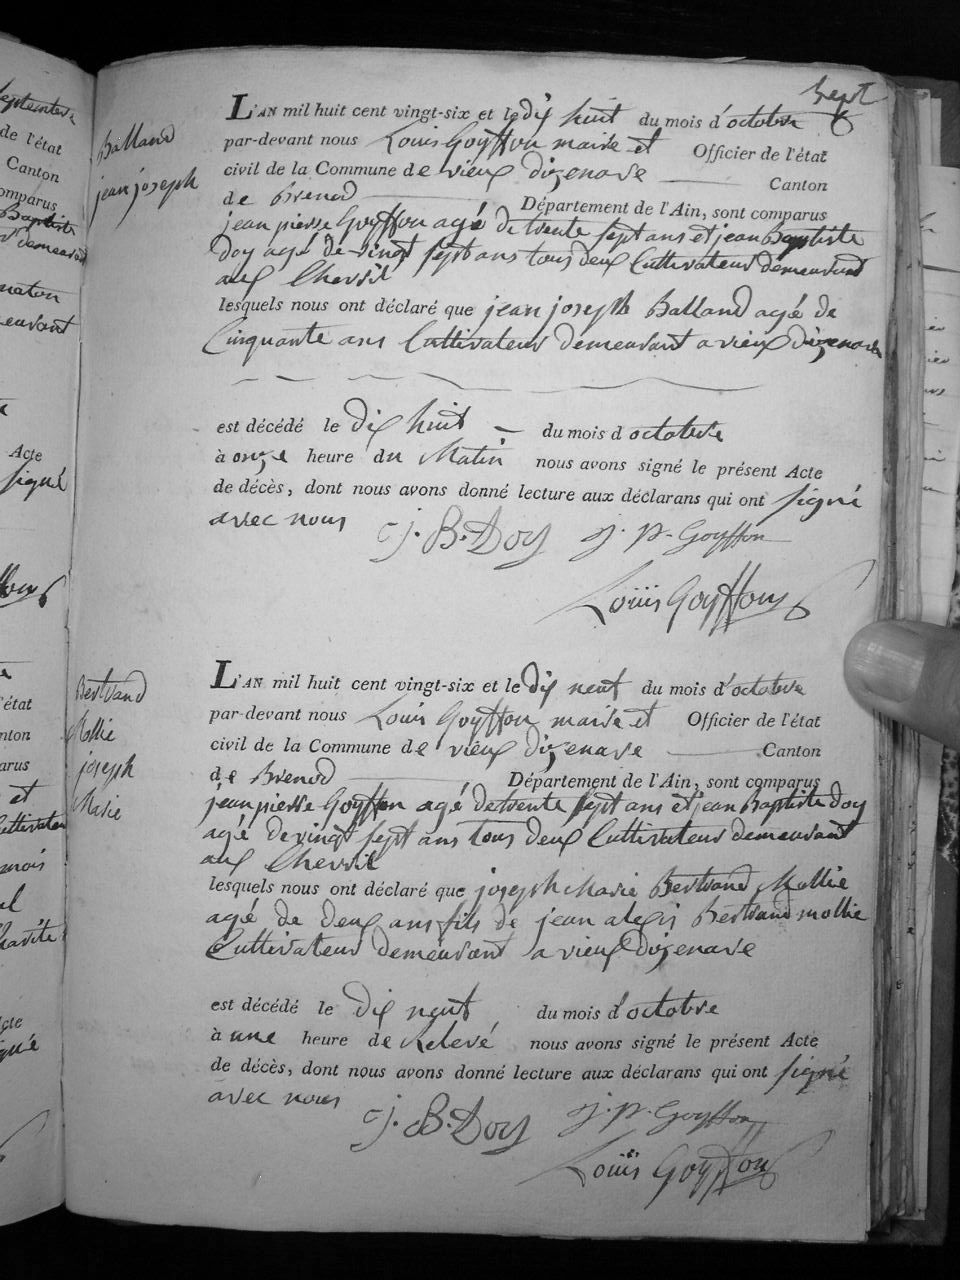 Sept
Balland
jean joseph
L'AN mil huit cent vingt-six et le dix huit du mois d'octobre
par-devant nous Louis Goyffon maire et Officier de l'état
civil de la Commune de vieux dizenave Canton
de Brenod Département de l'Ain, sont comparus
jean pierre Goyffon agé de trente sept ans et jean Baptiste
Doy agé de vingt sept ans tous deux Cultivateur demeurant
aux
lesquels nous ont déclaré que jean joseph Balland agé de
Cinquante ans Cultivateur demeurant a vieux dizenave
est décédé le dix huit du mois d octobre
à onze heure du Matin nous avons signé le présent Acte
de décès, dont nous avons donné lecture aux déclarans qui ont signé
avec nous j. B. Doy j. p. Goyffon
Louis Goyffon
Bertrand
Mollie
joseph
Marie
L'AN mil huit cent vingt-six et le dix neuf du mois d'octobre
par-devant nous Louis Goyffon maire et Officier de l'état
civil de la Commune de vieux dizenave Canton
de Brenod Département de l'Ain, sont comparus
jean pierre Goyffon agé de trente sept ans et jean Baptiste Doy
agé de vingt sept ans tous deux Cultivateur demeurant
aux
lesquels nous ont déclaré que joseph Marie Bertrand Mollie
agé de deux ans fils de jean alexis Bertrand mollie
Cultivateur demeurant a vieux dizenave
est décédé le dix neuf du mois d'octobre
à une heure de Relevé nous avons signé le présent Acte
de décès, dont nous avons donné lecture aux déclarans qui ont signé
avec nous j. B. Doy j. p. Goyffon
Louis Goyffon